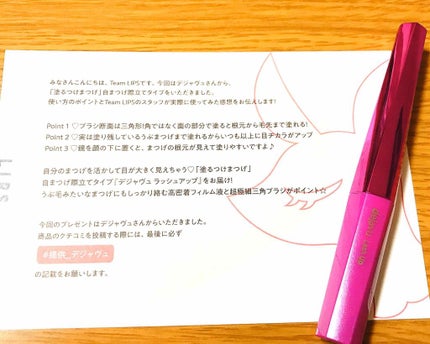 みなさんこんにちは、Team LIPSです。今回はデジャヴュさんから、
「塗るつけまつげ」自まつげ際立てタイプをいただきました。
使い方のポイントとTeam LIPSのスタッフが実際に使ってみた感想をお伝えします!
Point 1 ♡ブラシ断面は三角形!角ではなく面の部分で塗ると根元から毛先まで塗れる!
Point 2 ♡実は塗り残しているうぶまつげまで塗れるからいつも以上に目ヂカラがアップ
Point 3 ♡鏡を顔の下に置くと、まつげの根元が見えて塗りやすいですよ♪
自分のまつげを活かして目が大きく見えちゃう♡「塗るつけまつげ」
自まつげ際立てタイプ「デジャヴュ ラッシュアップ」をお届け!
うぶ毛みたいなまつげにもしっかり絡む高密着フィルム液と超極細三角ブラシがポイント☆
今回のプレゼントはデジャヴュさんからいただきました。
商品のクチコミを投稿する際には、最後に必ず
#提供_デジャヴュ
の記載をお願いします。